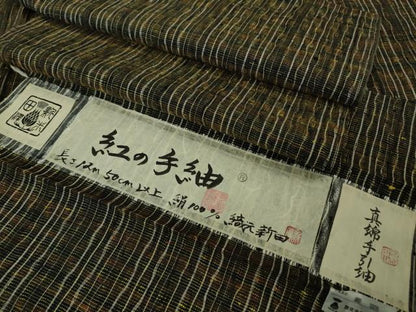 紅の手紬®
長さ12m50cm以上 絹100% 織元新田
真綿手引紬